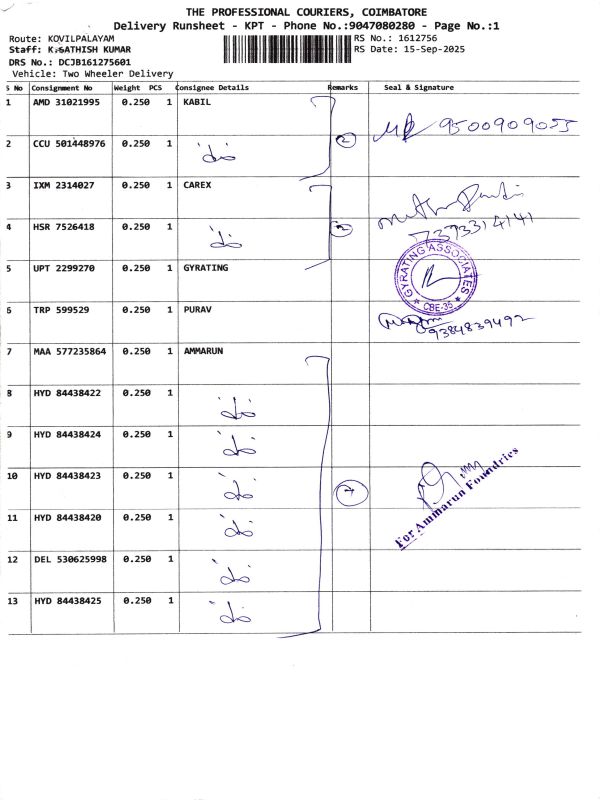 THE PROFESSIONAL COURIERS, COIMBATORE
Delivery Runsheet - KPT - Phone No.:9047080280 - Page No.:1
Route: KOVILPALAYAM RS No.: 1612756
Staff: K.SATHISH KUMAR RS Date: 15-Sep-2025
DRS No.: DCJB161275601
Vehicle: Two Wheeler Delivery
S No Consignment No Weight PCS Consignee Details Remarks Seal & Signature
1 AMD 31021995 0.250 1 KABIL
9500909055
2 CCU 501448976 0.250 1 2
3 IXM 2314027 0.250 1 CAREX
4 HSR 7526418 0.250 1 2
7373314141
5 UPT 2299270 0.250 1 GYRATING
GYRATING ASSOCIATES
CBE-35
6 TRP 599529 0.250 1 PURAV
9384839492
7 MAA 577235864 0.250 1 AMMARUN
8 HYD 84438422 0.250 1
9 HYD 84438424 0.250 1
10 HYD 84438423 0.250 1 7
For Ammarun Foundries
11 HYD 84438420 0.250 1
12 DEL 530625998 0.250 1
13 HYD 84438425 0.250 1